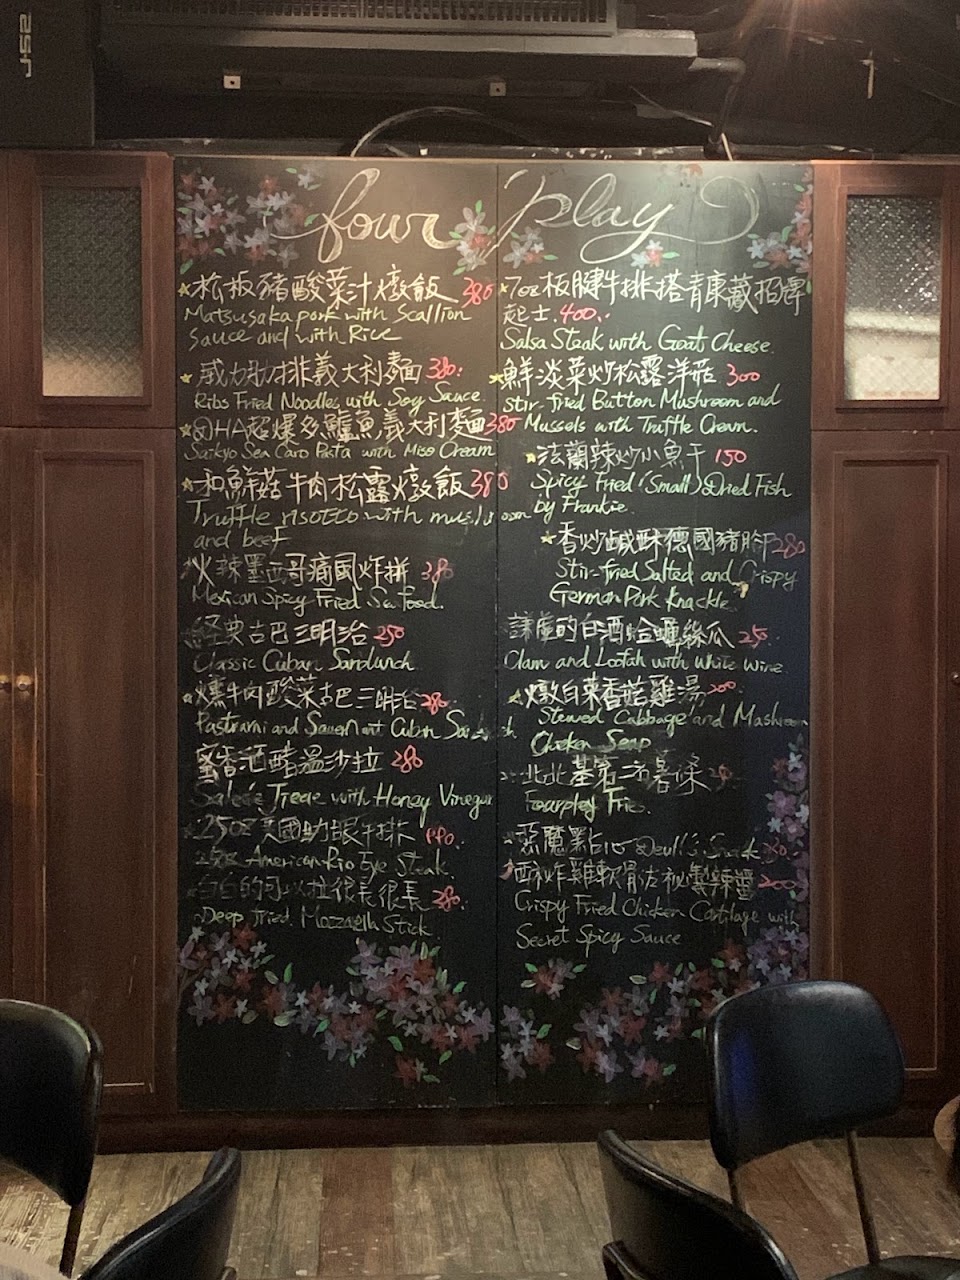 four play
松板豬酸菜汁燉飯 380
Matsusaka pork with Scallion
Sauce and with Rice
威力肋排義大利麵 380.
Ribs Fried Noodles with Soy Sauce.
HA超爆多鱸魚義大利麵 380
Saikyo Sea Caro Pasta with Miso Cream
和鮮菇牛肉松露燉飯 380
Truffle risotto with mushroom
and beef
火辣墨西哥痛風炸拼 380
Mexican Spicy Fried Seafood.
經典古巴三明治 250
Classic Cuban Sandwich
燻牛肉酸菜古巴三明治 280.
Pastrami and Cuban
蜜香酒醋溫沙拉 280
with Honey Vinegar
25oz美國肋眼牛排
25oz American Rib Eye Steak.
白白的可以拉很長很長 280.
Deep fried Mozzarella Stick.
7oz板腱牛排搭青康藏招牌
起士.400.
Salsa Steak with Goat Cheese.
鮮淡菜炒松露洋菇 300
Stir-fried Button Mushroom and
Mussels with Truffle Cream.
法蘭辣炒小魚干 150
Spicy Fried (Small) Dried Fish
by Frankie.
香炒鹹酥德國豬腳 280
Stir-fried Salted and Crispy
German Pork Knackle
的白酒蛤蠣絲瓜 250.
Clam and Loofah with White Wine.
燉白菜香菇雞湯 200
Stewed Cabbage and Mashroom
Chicken Soup
北北基第二市薯條
Fourplay Fries.
惡魔點心 Devil's Snack
酒炸雞軟骨沾秘製辣醬 200
Crispy Fried Chicken Cartilage with
Secret Spicy Sauce